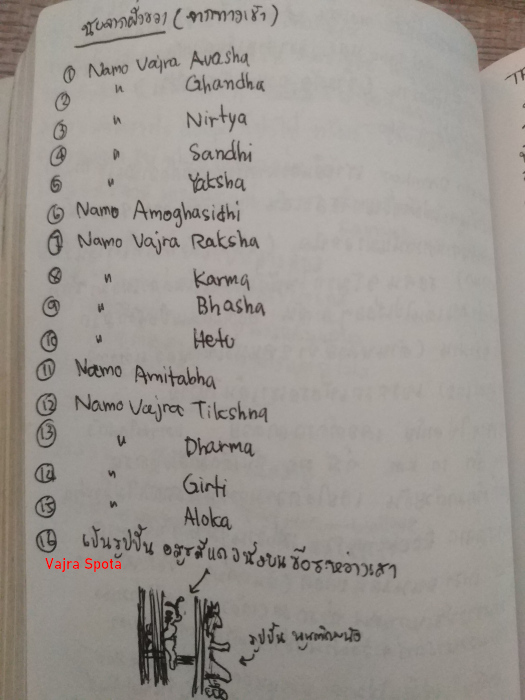 นับจากฝั่งขวา (จากทางเข้า)
① Namo Vajra Avasha
② " Ghandha
③ " Nirtya
④ " Sandhi
⑤ " Yaksha
⑥ Namo Amoghasidhi
⑦ Namo Vajra Raksha
⑧ " Karma
⑨ " Bhasha
⑩ " Hetu
⑪ Namo Amitabha
⑫ Namo Vajra Tikshna
⑬ " Dharma
⑭ " Girti
⑮ " Aloka
⑯ เป็นรูปปั้น อสูรสีแดงนั่งบนขื่อระหว่างเสา
Vajra Spota
รูปปั้น